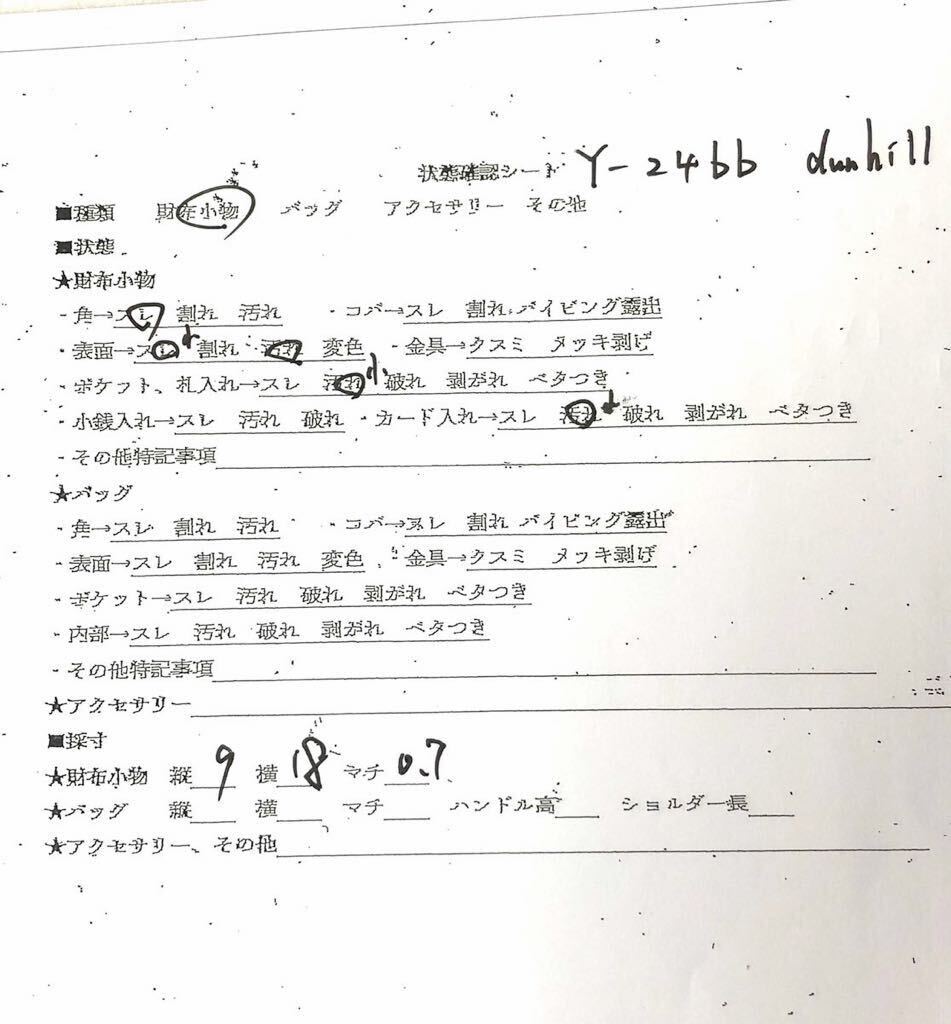 状態確認シート Y-2466 dunhill
■種類 財布小物 バッグ アクセサリー その他
■状態
★財布小物
・角→スレ 割れ 汚れ ・コバ→スレ 割れ パイピング露出
・表面→スレ小 割れ 汚れ 変色 ・金具→クスミ メッキ剥げ
・ポケット、札入れ→スレ 汚れ小 破れ 剥がれ ベタつき
・小銭入れ→スレ 汚れ 破れ ・カード入れ→スレ 汚れ小 破れ 剥がれ ベタつき
・その他特記事項
★バッグ
・角→スレ 割れ 汚れ ・コバ→スレ 割れ パイピング露出
・表面→スレ 割れ 汚れ 変色 ・金具→クスミ メッキ剥げ
・ポケット→スレ 汚れ 破れ 剥がれ ベタつき
・内部→スレ 汚れ 破れ 剥がれ ベタつき
・その他特記事項
★アクセサリー
■採寸
★財布小物 縦 9 横 18 マチ 0.7
★バッグ 縦 横 マチ ハンドル高 ショルダー長
★アクセサリー、その他